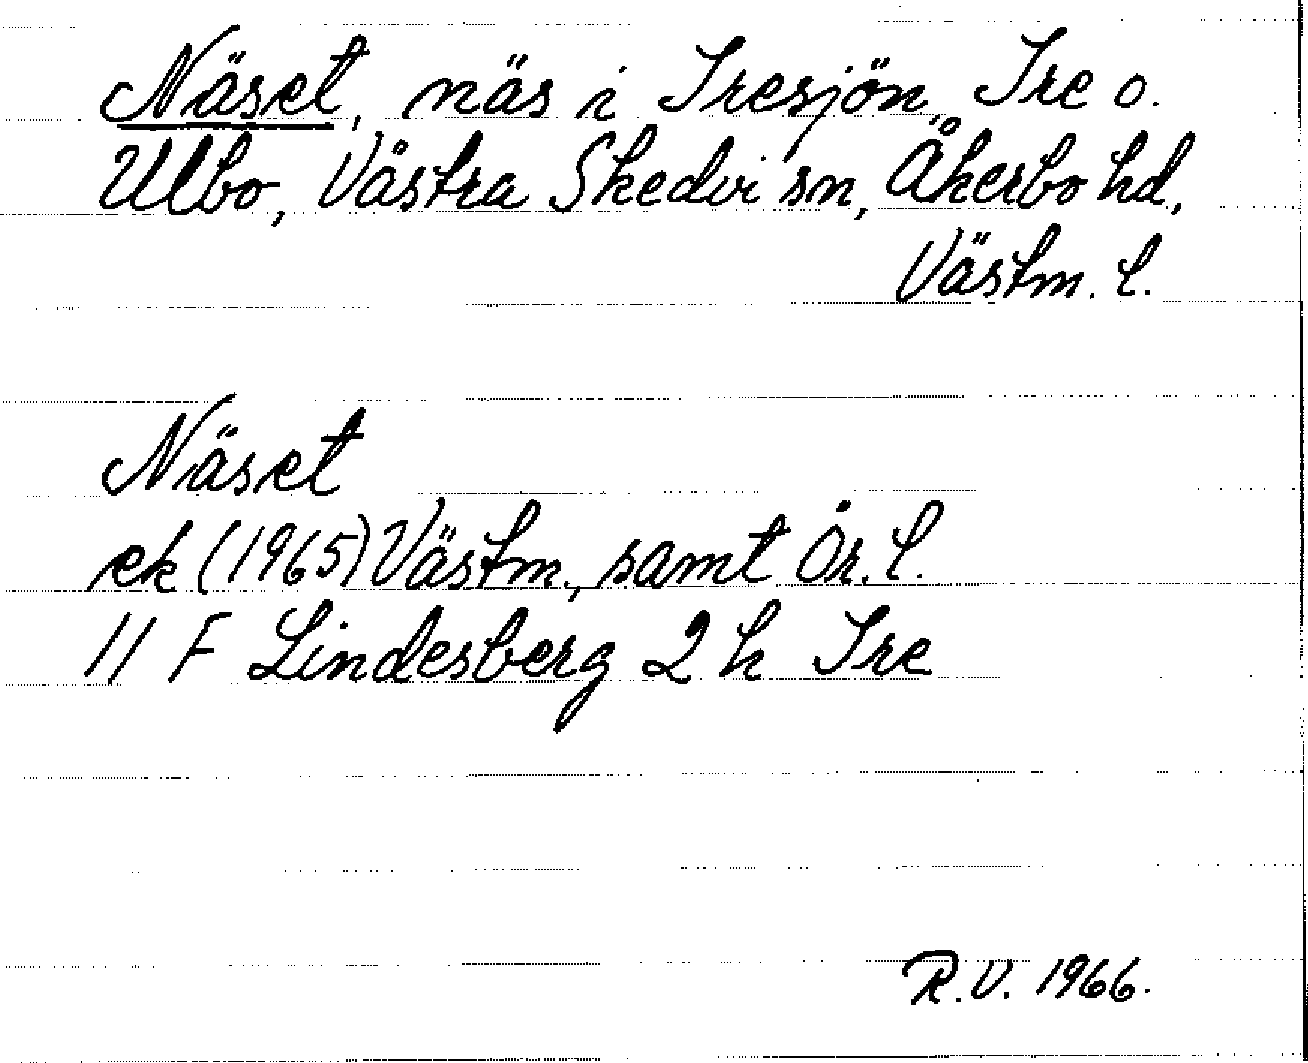 Näset, näs i Iresjön, Ire o.
Ulbo, Västra Skedvi sn, Åkerbo hd,
Västm. l.
Näset
ek (1965) Västm., samt Ör. l.
11 F Lindesberg 2 h Ire
R.V. 1966.